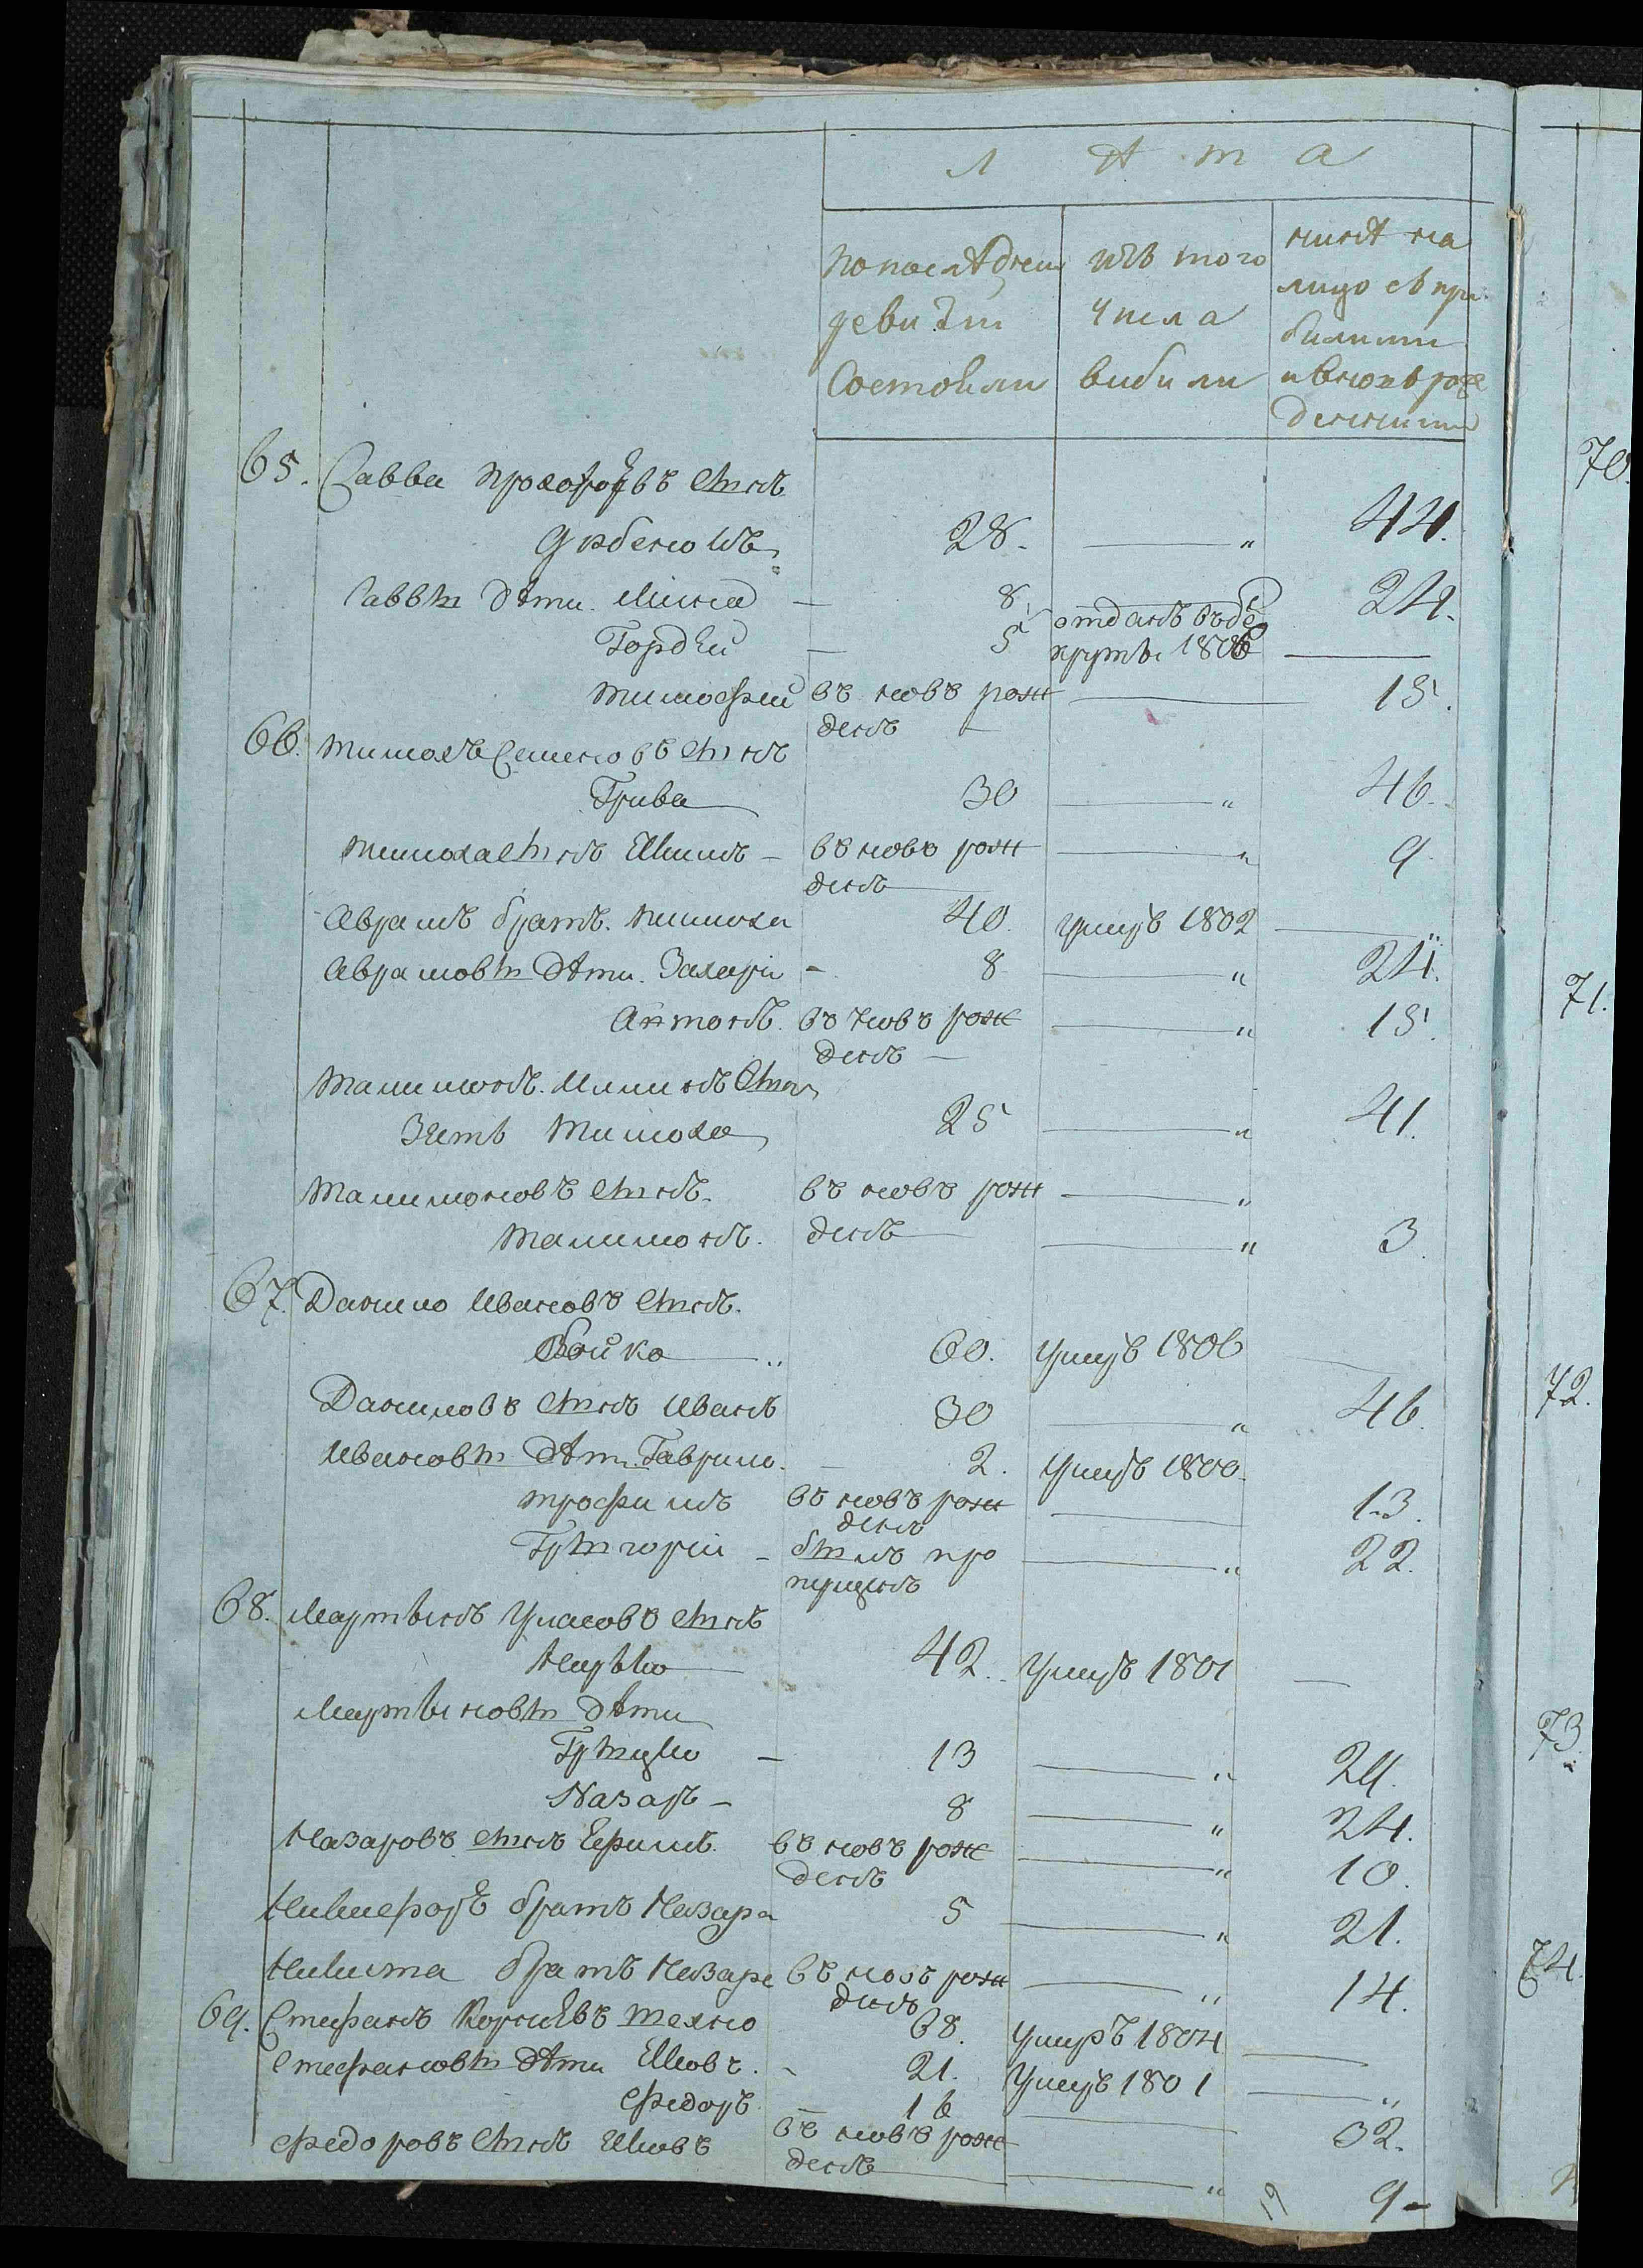 Л ѣ т а
по послѣдней ревизіи Состояли
изъ того числа выбыли
нинѣ на лицо съ прибылими и вновь рожденними
65. Савва Прохоровъ сынъ
28. — " 44.
Саввы дѣти. Мина — 8. — 24.
Гордѣй — 5 отданъ въ рекруты 1806 —
Тимофей въ новѣ рожденъ — — 15.
66. Тимохъ Семеновъ сынъ
Грива 30 — " 46.
Тимоха сынъ Якимъ — въ новѣ рожденъ — " 9.
Аврамъ братъ Тимоха 40. умеръ 1802 — "
Аврамовы дѣти. Захарій — 8 — " 24.
Антонъ. въ новѣ рожденъ — — " 15.
Зять Тимоха 25 — " 41.
сынъ. въ новѣ рожденъ — "
— " 3.
67. Данило Ивановъ сынъ.
Бойко — " 60. умеръ 1806 —
Даниловъ сынъ Иванъ 30 — " 46.
Ивановы дѣти. Гаврило. — 2. умеръ 1800.
Трофимъ въ новѣ рожденъ — 13.
Григорій — былъ пропущенъ — " 22.
68. Мартынъ Уласовъ сынъ
42. умеръ 1801 —
Мартыновы дѣти
Грицко — 13 — " 29.
Назаръ — 8 — " 24.
Назаровъ сынъ Ефимъ. въ новѣ рожденъ — " 10.
Никифоръ братъ Назара 5 — " 21.
Никита братъ Назара въ новѣ рожденъ — " 14.
69. Стефанъ Корнѣевъ 68. умеръ 1804 —
Стефановы дѣти Яковъ. — 21. умеръ 1801 — "
Федоръ. — 16 — 32.
Федоровъ сынъ Яковъ въ новѣ рожденъ — — " 9 —
19
70.
71.
72.
73.
74.